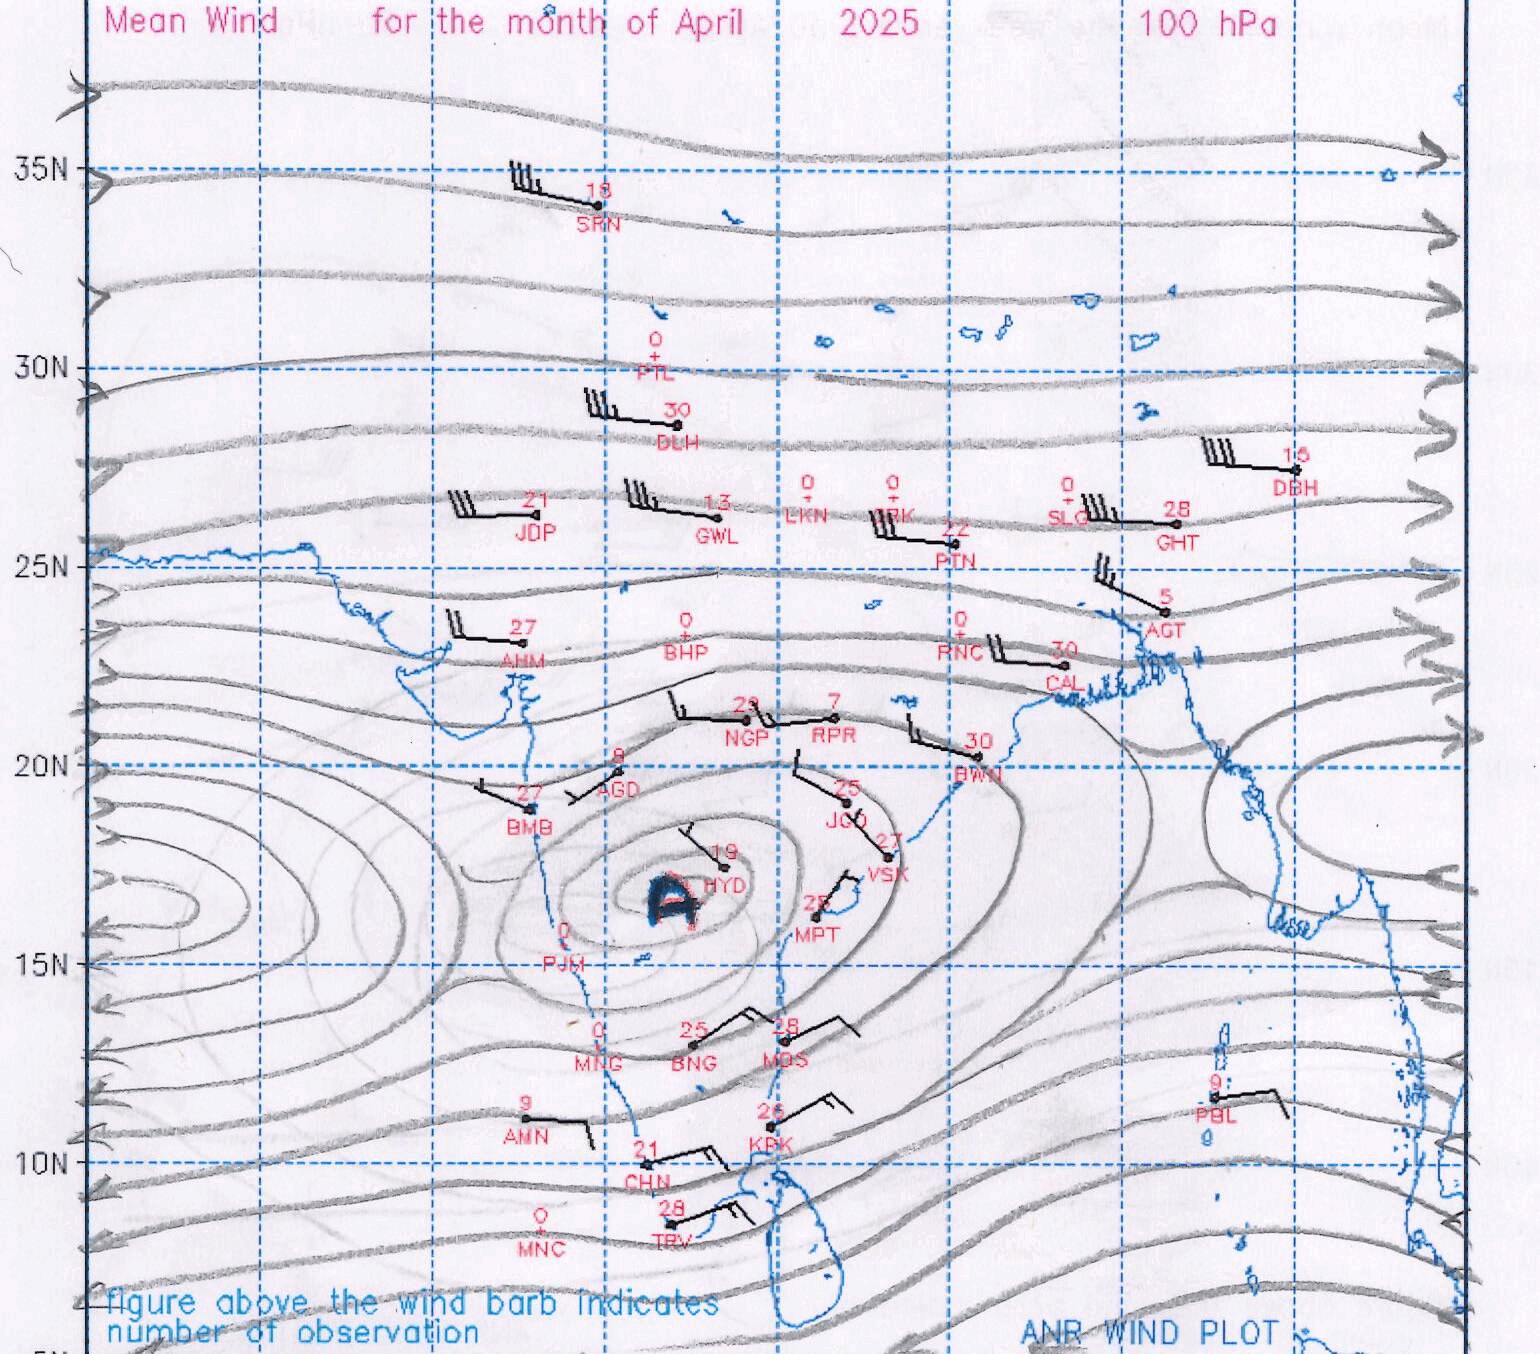 Mean Wind for the month of April 2025 100 hPa
35N
18
SRN
0
PTL
30N
30
DLH
15
DBH
21
JDP
13
GWL
0
LKN
0
GRK
22
PTN
0
SLG
28
GHT
25N
5
AGT
27
AHM
0
BHP
0
RNC
30
CAL
29
NGP
7
RPR
30
BWN
20N
8
AGD
27
BMB
25
JGD
27
VSK
19
HYD
A
25
MPT
0
PJM
15N
0
MNG
25
BNG
28
MDS
9
AMN
26
KRK
9
PBL
10N
21
CHN
28
TRV
0
MNC
figure above the wind barb indicates
number of observation
ANR WIND PLOT